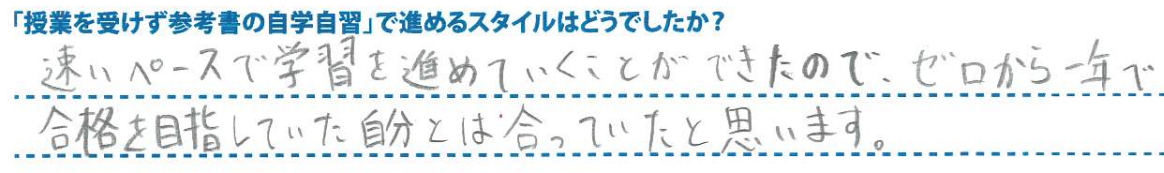 「授業を受けず参考書の自学自習」で進めるスタイルはどうでしたか？
速いペースで学習を進めていくことができたので、ゼロから一年で
合格を目指していた自分とは合っていたと思います。